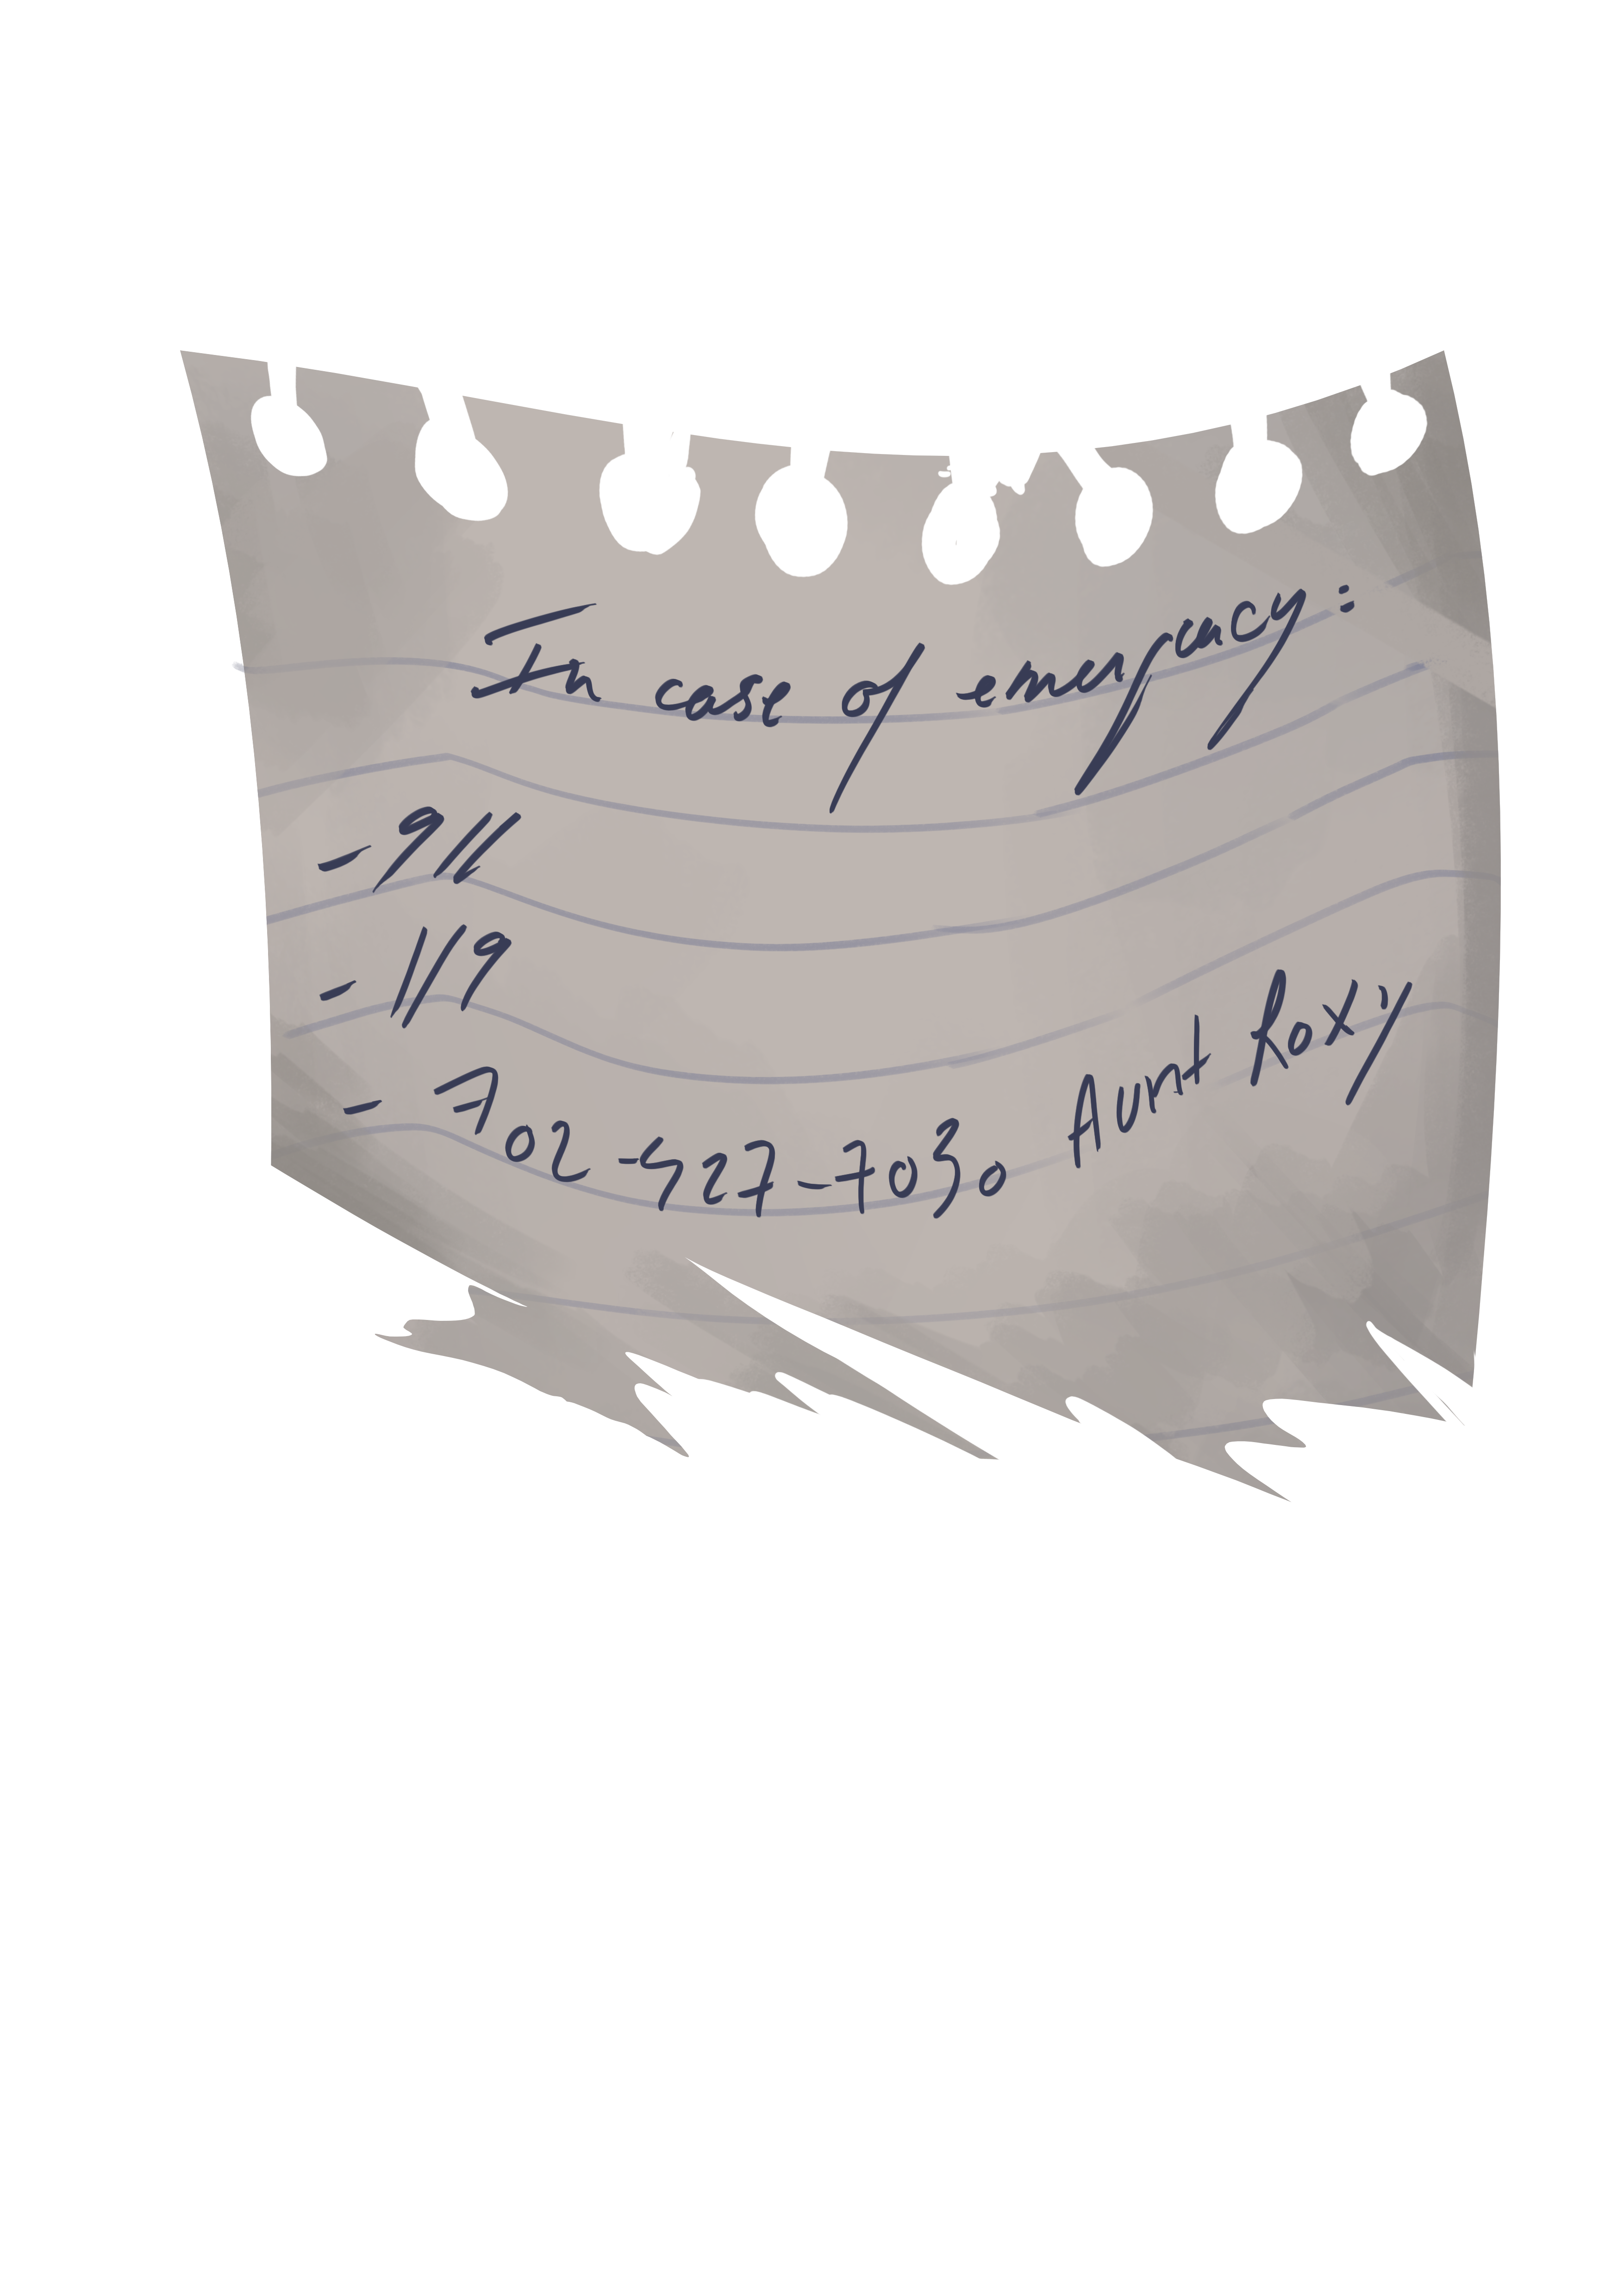 In case of emergancy:
- 911
- 119
- 702-427-7030 Aunt Roxy